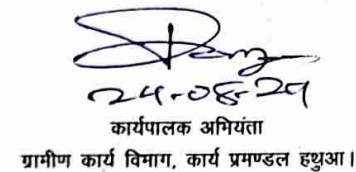 24-08-24
कार्यपालक अभियंता
ग्रामीण कार्य विभाग, कार्य प्रमण्डल हथुआ।